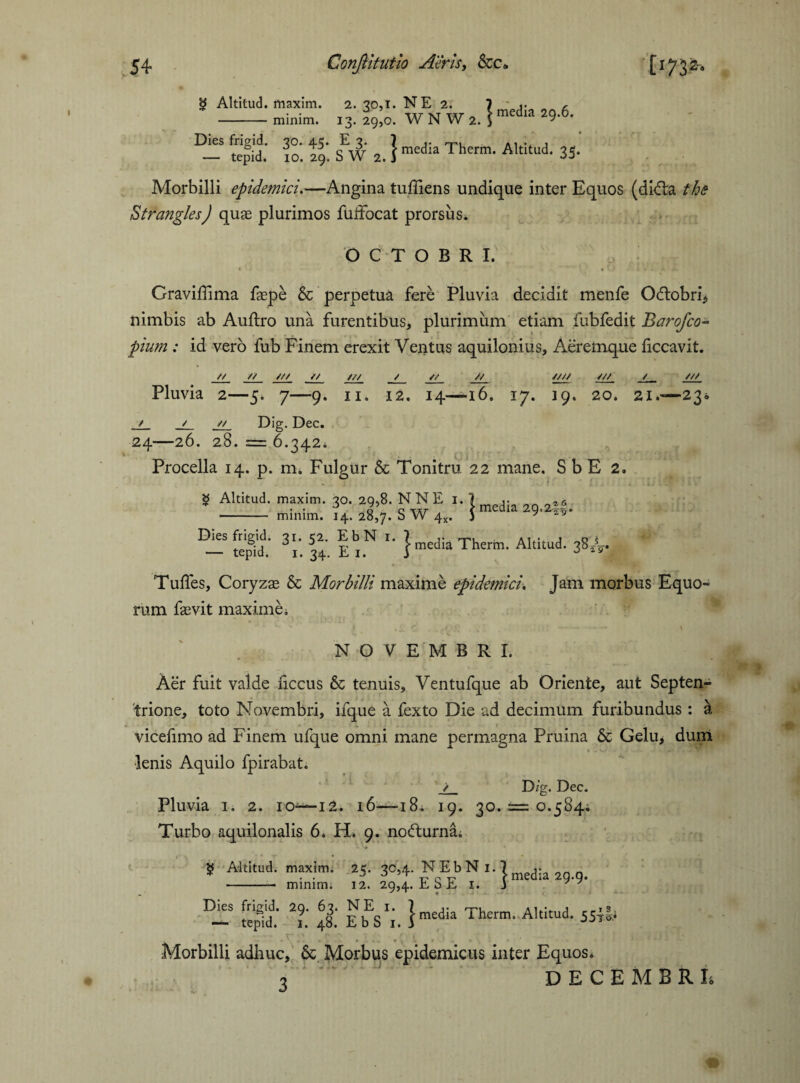 54 Conſtitutio Aëris, &c. [1732.
☿ Altitud. maxim. 2. 30,1. N E 2. } media 29.6.
——— minim. 13. 29,0. W N W 2.
Dies frigid. 30. 45. E 3. } media Therm. Altitud. 35.
— tepid. 10. 29. S W 2.
Morbilli epidemici.—Angina tuſſiens undique inter Equos (dicta the
Strangles) quæ plurimos ſuffocat prorsùs.
OCTOBRI.
Graviſſima ſæpè & perpetua ferè Pluvia decidit menſe Octobri,
nimbis ab Auſtro unà furentibus, plurimùm etiam ſubſedit Baroſco-
pium : id verò ſub Finem erexit Ventus aquilonius, Aëremque ſiccavit.
// // /// // /// / // // //// /// / ///
Pluvia 2—5. 7—9. 11. 12. 14—16. 17. 19. 20. 21.—23.
/ / // Dig. Dec.
24—26. 28. = 6.342.
Procella 14. p. m. Fulgur & Tonitru 22 mane. S b E 2.
☿ Altitud. maxim. 30. 29,8. N N E 1. } media 29.2
——— minim. 14. 28,7. S W 4x.
Dies frigid. 31. 52. E b N 1. } media Therm. Altitud. 38
— tepid. 1. 34. E 1.
Tuſſes, Coryzæ & Morbilli maximè epidemici. Jam morbus Equo-
rum ſævit maximè.
NOVEMBRI.
Aër fuit valde ſiccus & tenuis, Ventuſque ab Oriente, aut Septen-
trione, toto Novembri, iſque à ſexto Die ad decimum furibundus : à
viceſimo ad Finem uſque omni mane permagna Pruina & Gelu, dum
lenis Aquilo ſpirabat.
/ Dig. Dec.
Pluvia 1. 2. 10—12. 16—18. 19. 30. = 0.584.
Turbo aquilonalis 6. H. 9. nocturnâ.
☿ Altitud. maxim. 25. 30,4. N E b N 1. } media 29.9.
——— minim. 12. 29,4. E S E 1.
Dies frigid. 29. 63. N E 1. } media Therm. Altitud. 55
— tepid. 1. 48. E b S 1.
Morbilli adhuc, & Morbus epidemicus inter Equos.
3 DECEMBRI.